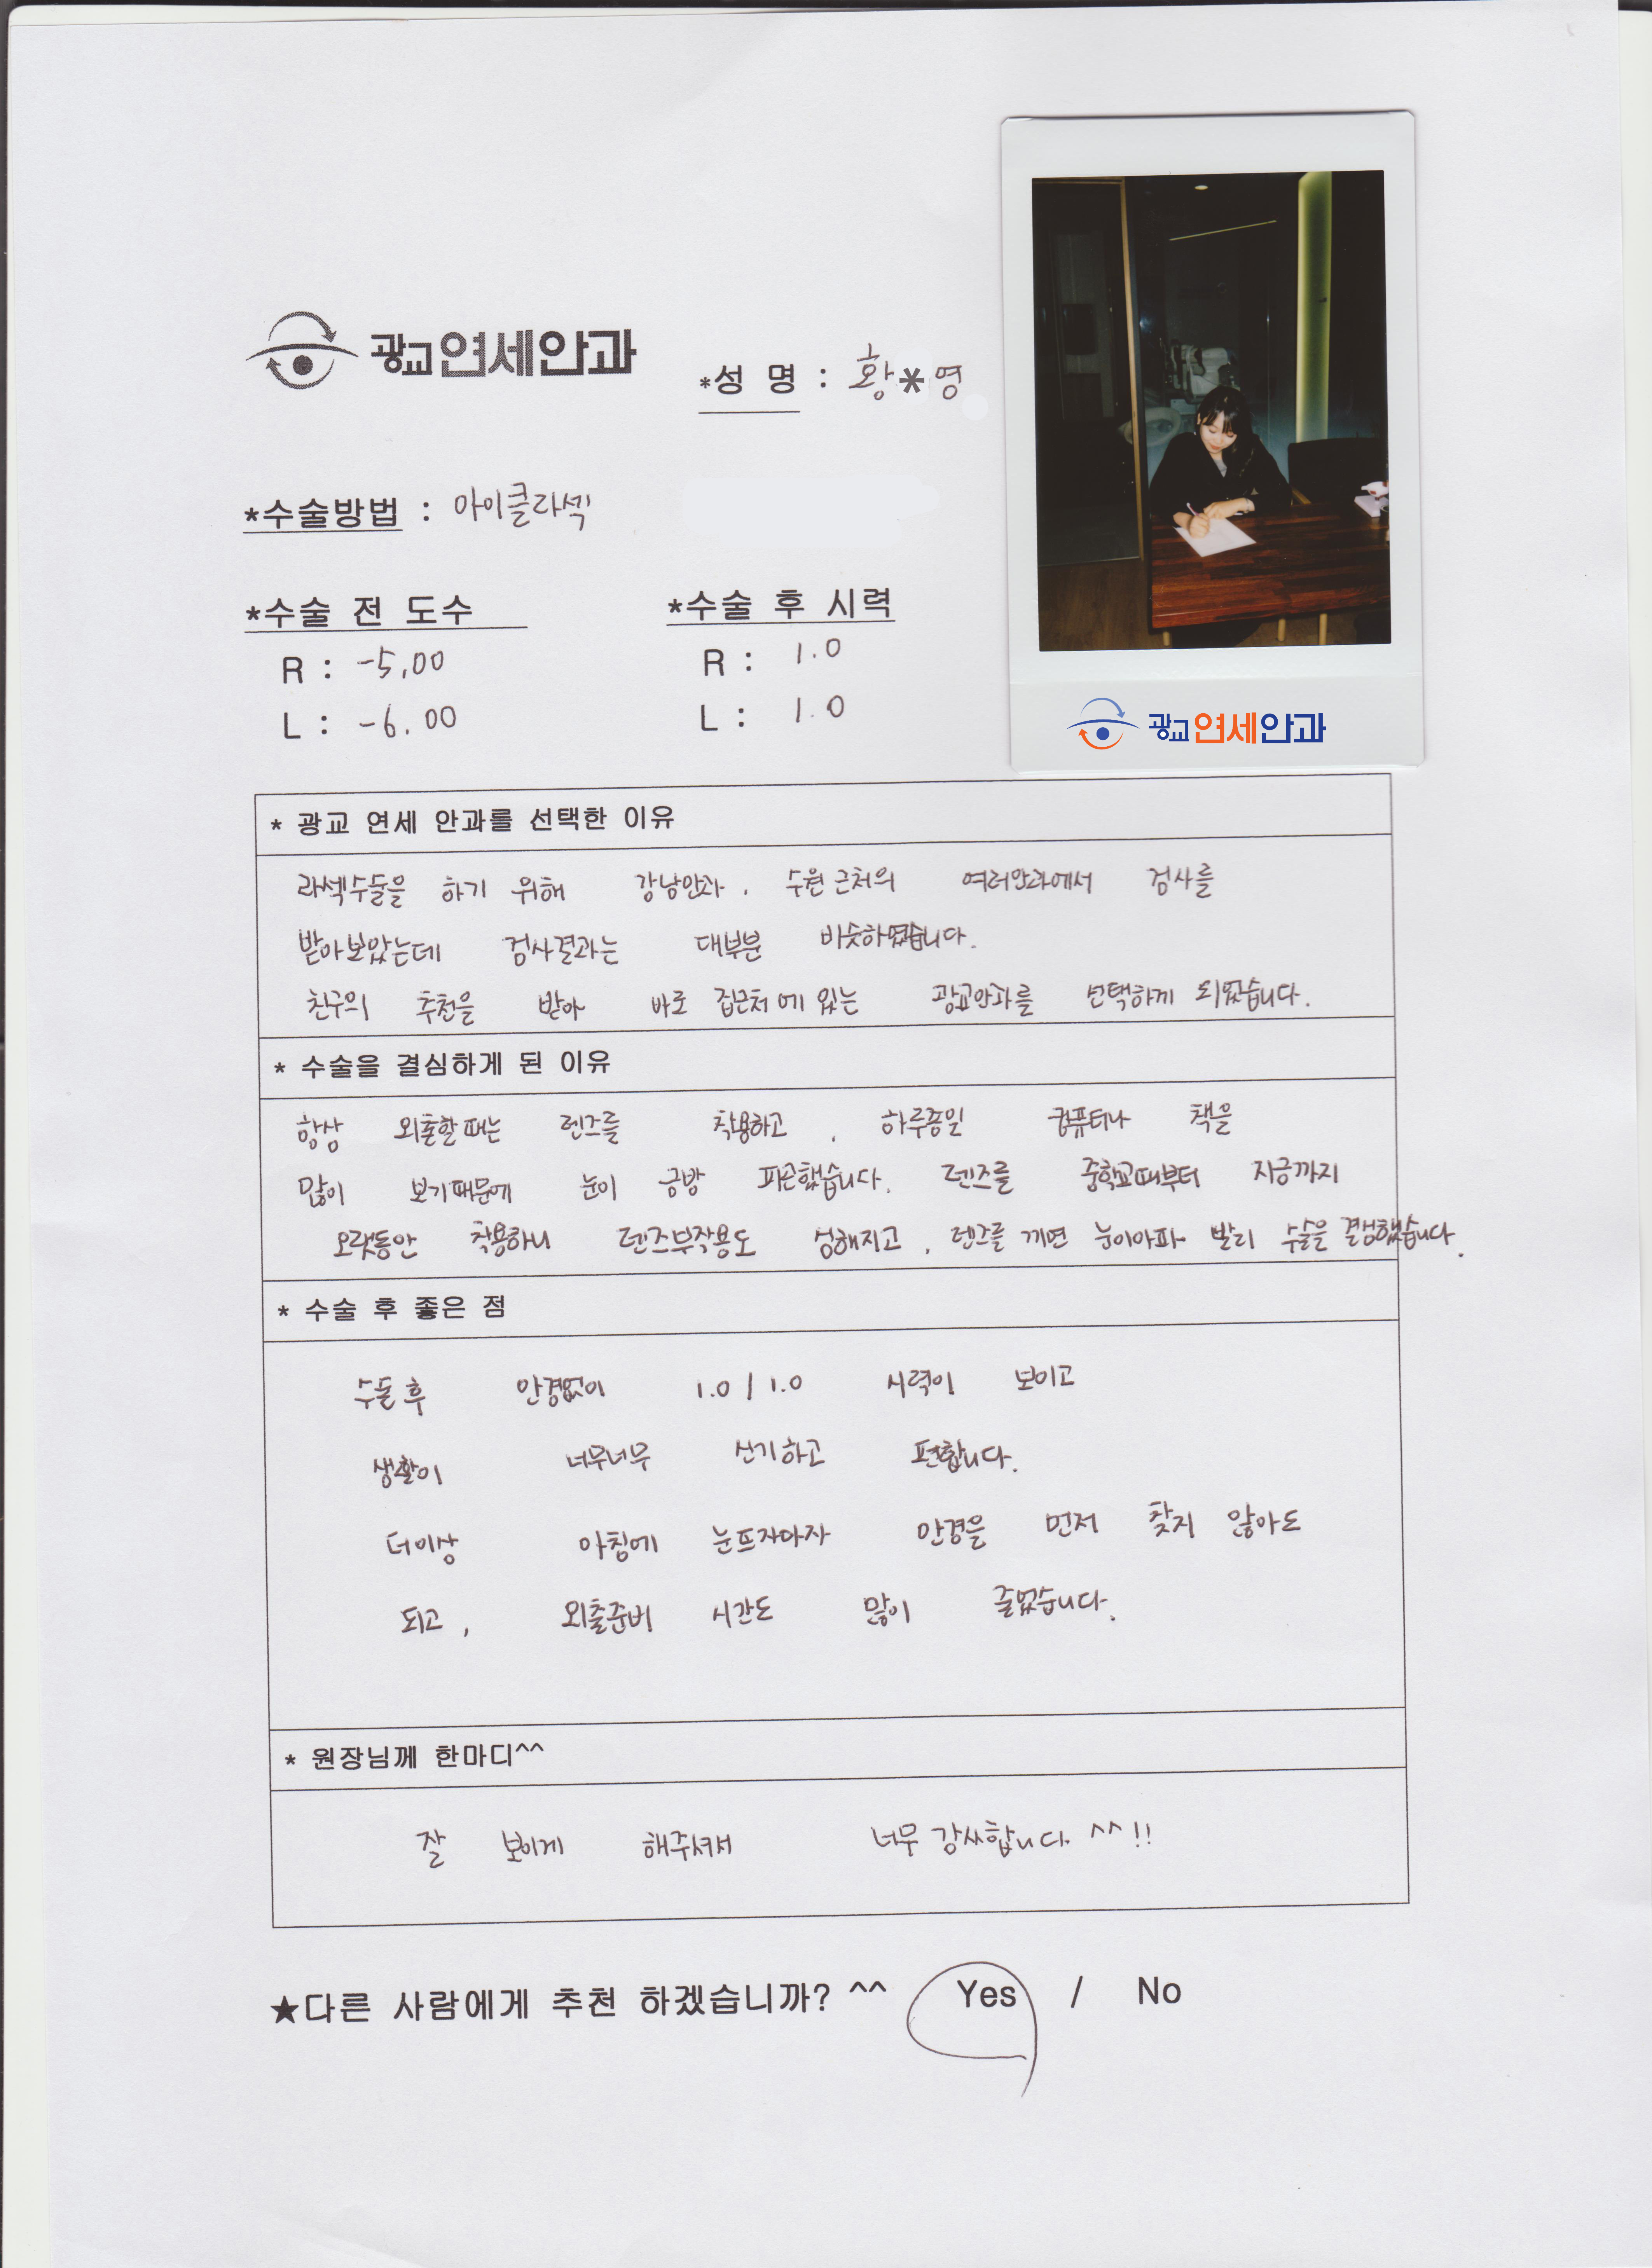 광교연세안과
*성 명 : 황*영
*수술방법 : 아이클라섹
*수술 전 도수
R : -5.00
L : -6.00
*수술 후 시력
R : 1.0
L : 1.0
광교연세안과
* 광교 연세 안과를 선택한 이유
라섹수술을 하기 위해 강남안과, 수원 근처의 여러안과에서 검사를
받아보았는데 검사결과는 대부분 비슷하였습니다.
친구의 추천을 받아 바로 집근처에 있는 광교안과를 선택하게 되었습니다.
* 수술을 결심하게 된 이유
항상 외출할때는 렌즈를 착용하고, 하루종일 컴퓨터나 책을
많이 보기때문에 눈이 금방 피곤했습니다. 렌즈를 중학교때부터 지금까지
오랫동안 착용하니 렌즈부작용도 심해지고, 렌즈를 끼면 눈이아파 빨리 수술을 결심했습니다.
* 수술 후 좋은 점
수술후 안경없이 1.0 / 1.0 시력이 보이고
생활이 너무너무 신기하고 편합니다.
더이상 아침에 눈뜨자마자 안경을 먼저 찾지 않아도
되고, 외출준비 시간도 많이 줄었습니다.
* 원장님께 한마디^^
잘 보이게 해주셔서 너무 감사합니다 ^^!!
★다른 사람에게 추천 하겠습니까? ^^ Yes / No